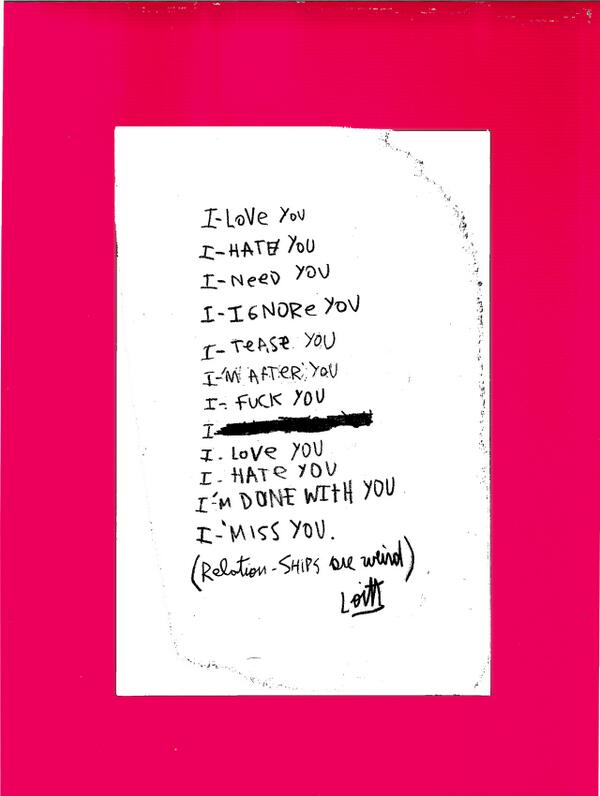 I-LoVe YoU
I-HATE YoU
I-NeeD YOU
I-IGNORe YOU
I-TeASE YOU
I-'M AFTeR YoU
I-. FUCK YOU
I
I. LoVe YOU
I. HATe YOU
I'-M DONE WItH YOU
I-'MISS YOU.
(Relation-SHIPs are weird)